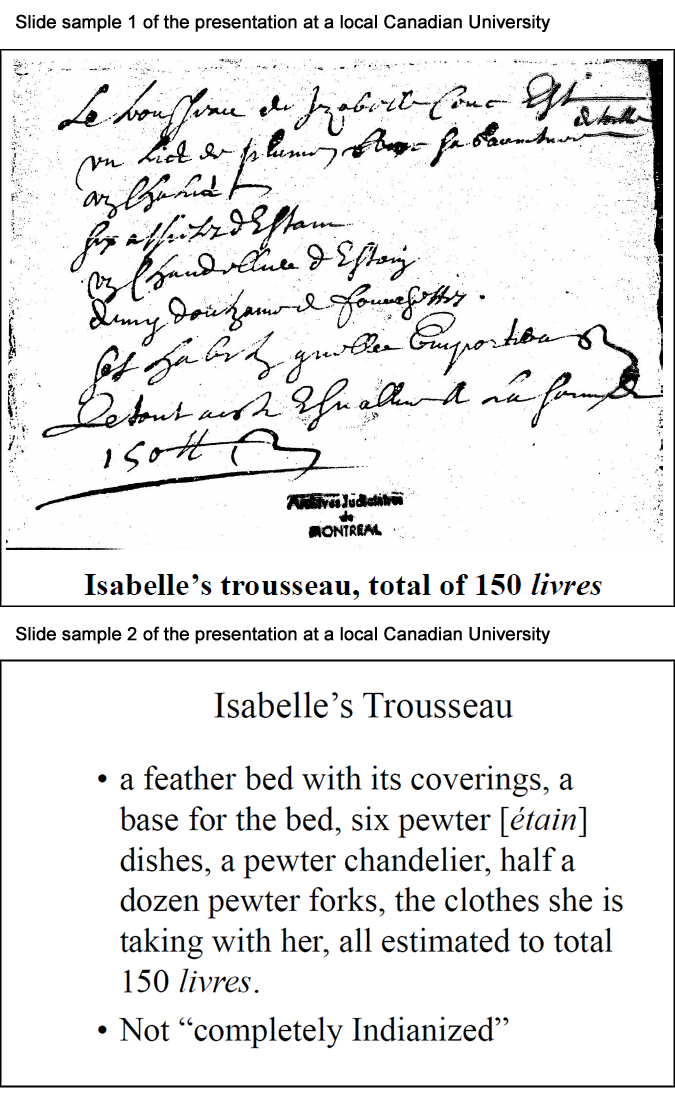 Slide sample 1 of the presentation at a local Canadian University
Le trousseau de Izabelle Couc Est
un lict de plume
six assiettes d'Estain
un Chandellier d'Estain
demy douzaine de fourchettes.
ses habits quelle Emportera
Le tout a La somme
150 ₶
Archives Judiciaires
de
MONTREAL
Isabelle’s trousseau, total of 150 livres
Slide sample 2 of the presentation at a local Canadian University
Isabelle’s Trousseau
• a feather bed with its coverings, a
base for the bed, six pewter [étain]
dishes, a pewter chandelier, half a
dozen pewter forks, the clothes she is
taking with her, all estimated to total
150 livres.
• Not “completely Indianized”